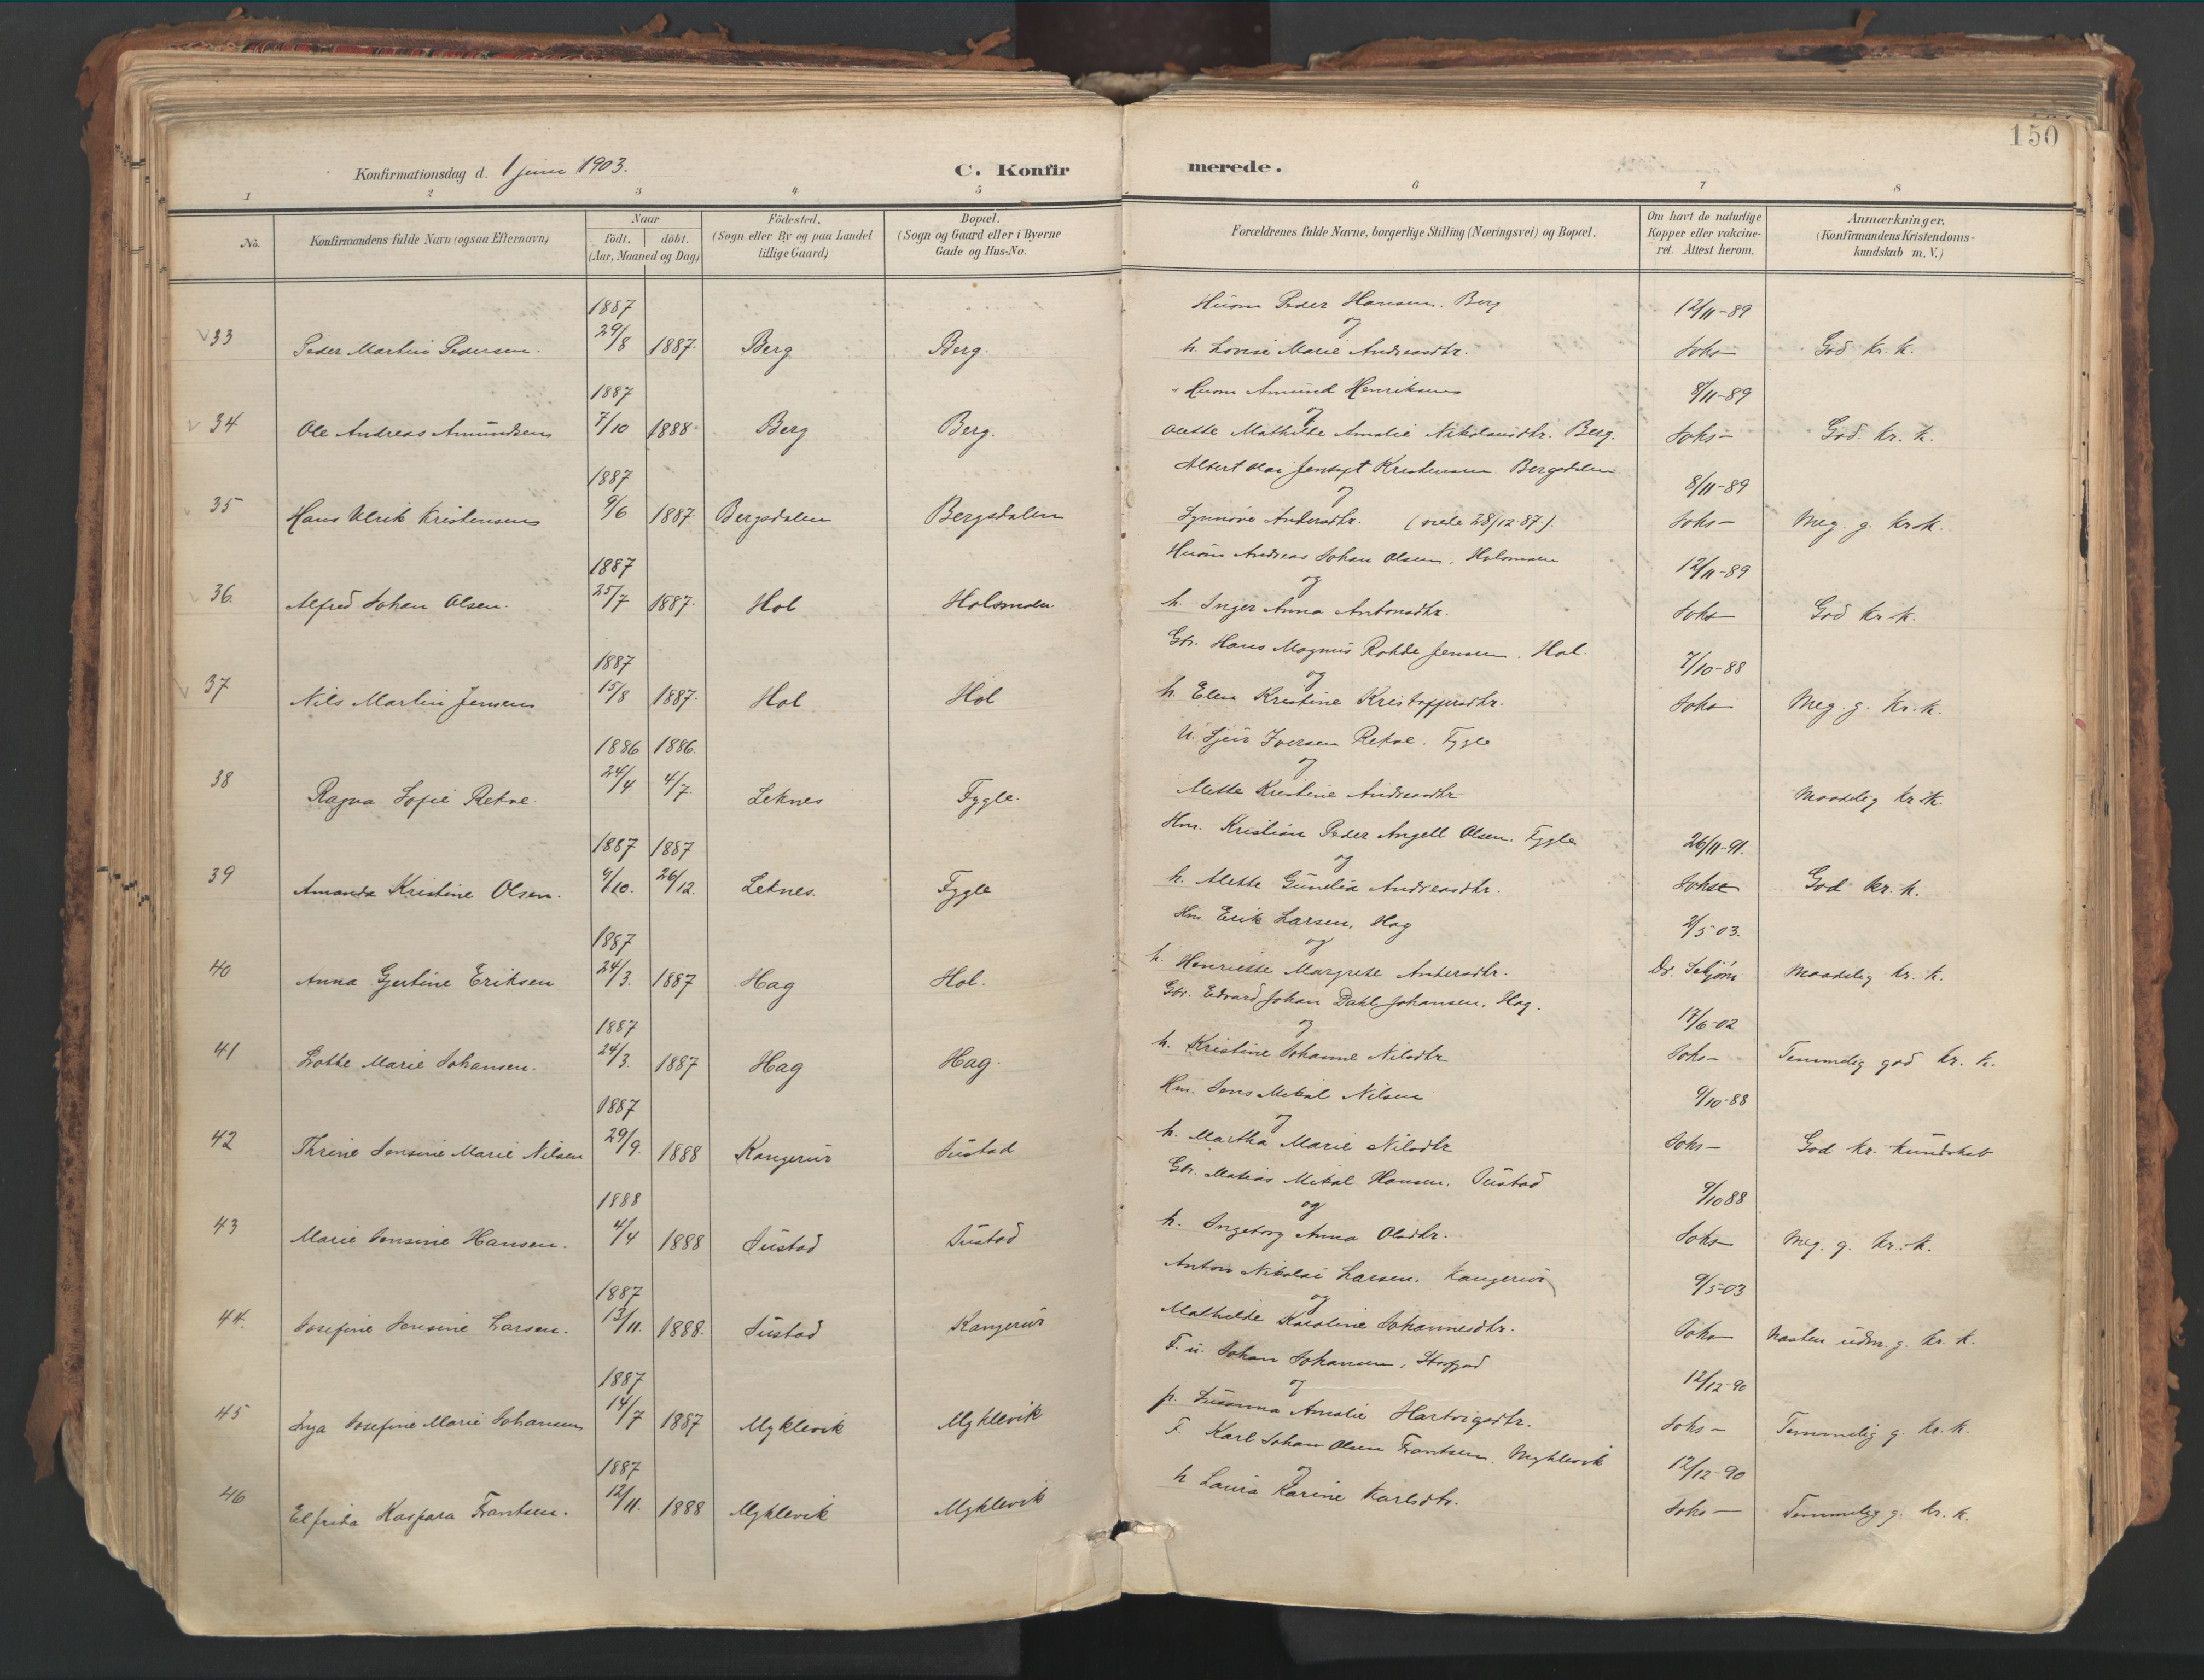 150
Konfirmationsdag d. 1 juni 1903.
C. Konfirmerede.
1 2 3 4 5 6 7 8
No.
Konfirmandens fulde Navn (ogsaa Efternavn)
Naar
födt. döbt.
(Aar, Maaned og Dag)
Födested.
(Sogn eller By og paa Landet
tillige Gaard)
Bopæl.
(Sogn og Gaard eller i Byerne
Gade og Hus-No.
Forældrenes fulde Navne, borgerlige Stilling (Næringsvei) og Bopæl.
Om havt de naturlige
Kopper eller vakcine-
ret. Attest herom.
Anmærkninger.
(Konfirmandens Kristendoms-
kundskab m. V.)
1887 Husm Peder Hansen. Berg 12/11-89
og
33 Peder Martin Pedersen. 29/8 1887. Berg Berg. h. Lovise Marie Andreasdtr. God kr. k.
1887 Husm Amund Henriksen 8/11-89
og
34 Ole Andreas Amundsen 7/10 1888 Berg Berg. Mathilde Amalie Nikolaisdtr. Berg. God. kr. k.
1887 Albert Kristensen. Bergsdalen 8/11-89
og
35 Hans Ulrik Kristensen 9/6 1887 Bergsdalen Bergsdalen Synnøve Andersdtr. (viede 28/12 87.). Meg. g. kr. k.
1887 Husm Andreas Johan Olsen. 12/11-89
og
36. Alfred Johan Olsen. 25/7 1887. Hol h. Inger Anna Antonsdtr. God kr. k.
1887 Gbr. Hans Magnus Rohde Jensen. Hol. 7/10-88
og
37 Nils Martin Jensen 15/8 1887. Hol Hol h. Elen Kristine Kristoffersdtr. Meg. g. kr. k.
1886 1886. Iversen Rekve. Fygle
og
38 Ragna Sofie Rekve. 24/4 4/7. Leknes Fygle. Mette Kristine Andreasdtr Maadelig kr. k.
1887 1887 Hm. Kristian Peder Angell Olsen. Fygle 26/11-91.
og
39 Amanda Kristine Olsen. 9/10. 26/12. Leknes. Fygle h. Mette Gunelia Andreasdtr. God kr. k.
1887 Hm. Erik Larsen, Hag 2/5 03.
og
40 Anna Gjertine Eriksen 24/3. 1887 Hag Hol. h. Henriette Margrete Andersdtr. Dr. Maadelig kr. k.
1887 Gbr. Edvard Johan Dahl Johansen, Hag. 17/6-02
og
41 Lotte Marie Johansen. 24/3. 1887 Hag Hag. h. Kristine Johanne Nilsdtr Temmelig god kr. k.
1887 Hm. Jens Mikal Nilsen 9/10-88
og
42 Thrine Jensine Marie Nilsen 29/9. 1888 Kangerur Sustad h. Martha Marie Nilsdtr God kr. kundskab
1888 Gbr. Matias Mikal Hansen. Sustad 9/10 88
og
43 Marie Jensine Hansen. 4/4 1888 Sustad Sustad h. Ingeborg Anna Olsdtr. Meg. g. kr. k.
1887 Anton Nikolai Larsen. Kangerur 9/5-03
og
44. Josefine Jensine Larsen. 13/11. 1888. Sustad Kangerur Mathilde Karoline Johannesdtr. Næsten udm. g. kr. k.
1887 F. u. Johan Johansen, 12/12-90
og
45 Inga Josefine Marie Johansen 14/7 1887 Myklevik Myklevik p. Susanna Amalie Hartvigsdtr. Temmelig g. kr. k.
1887 F. Karl Johan Olsen Frantsen. Myklevik 12/12-90
og
46 Elfrida Kaspara Frantsen. 12/11. 1888 Myklevik Myklevik h Laura Karine Karlsdtr. Temmelig g. kr. k.